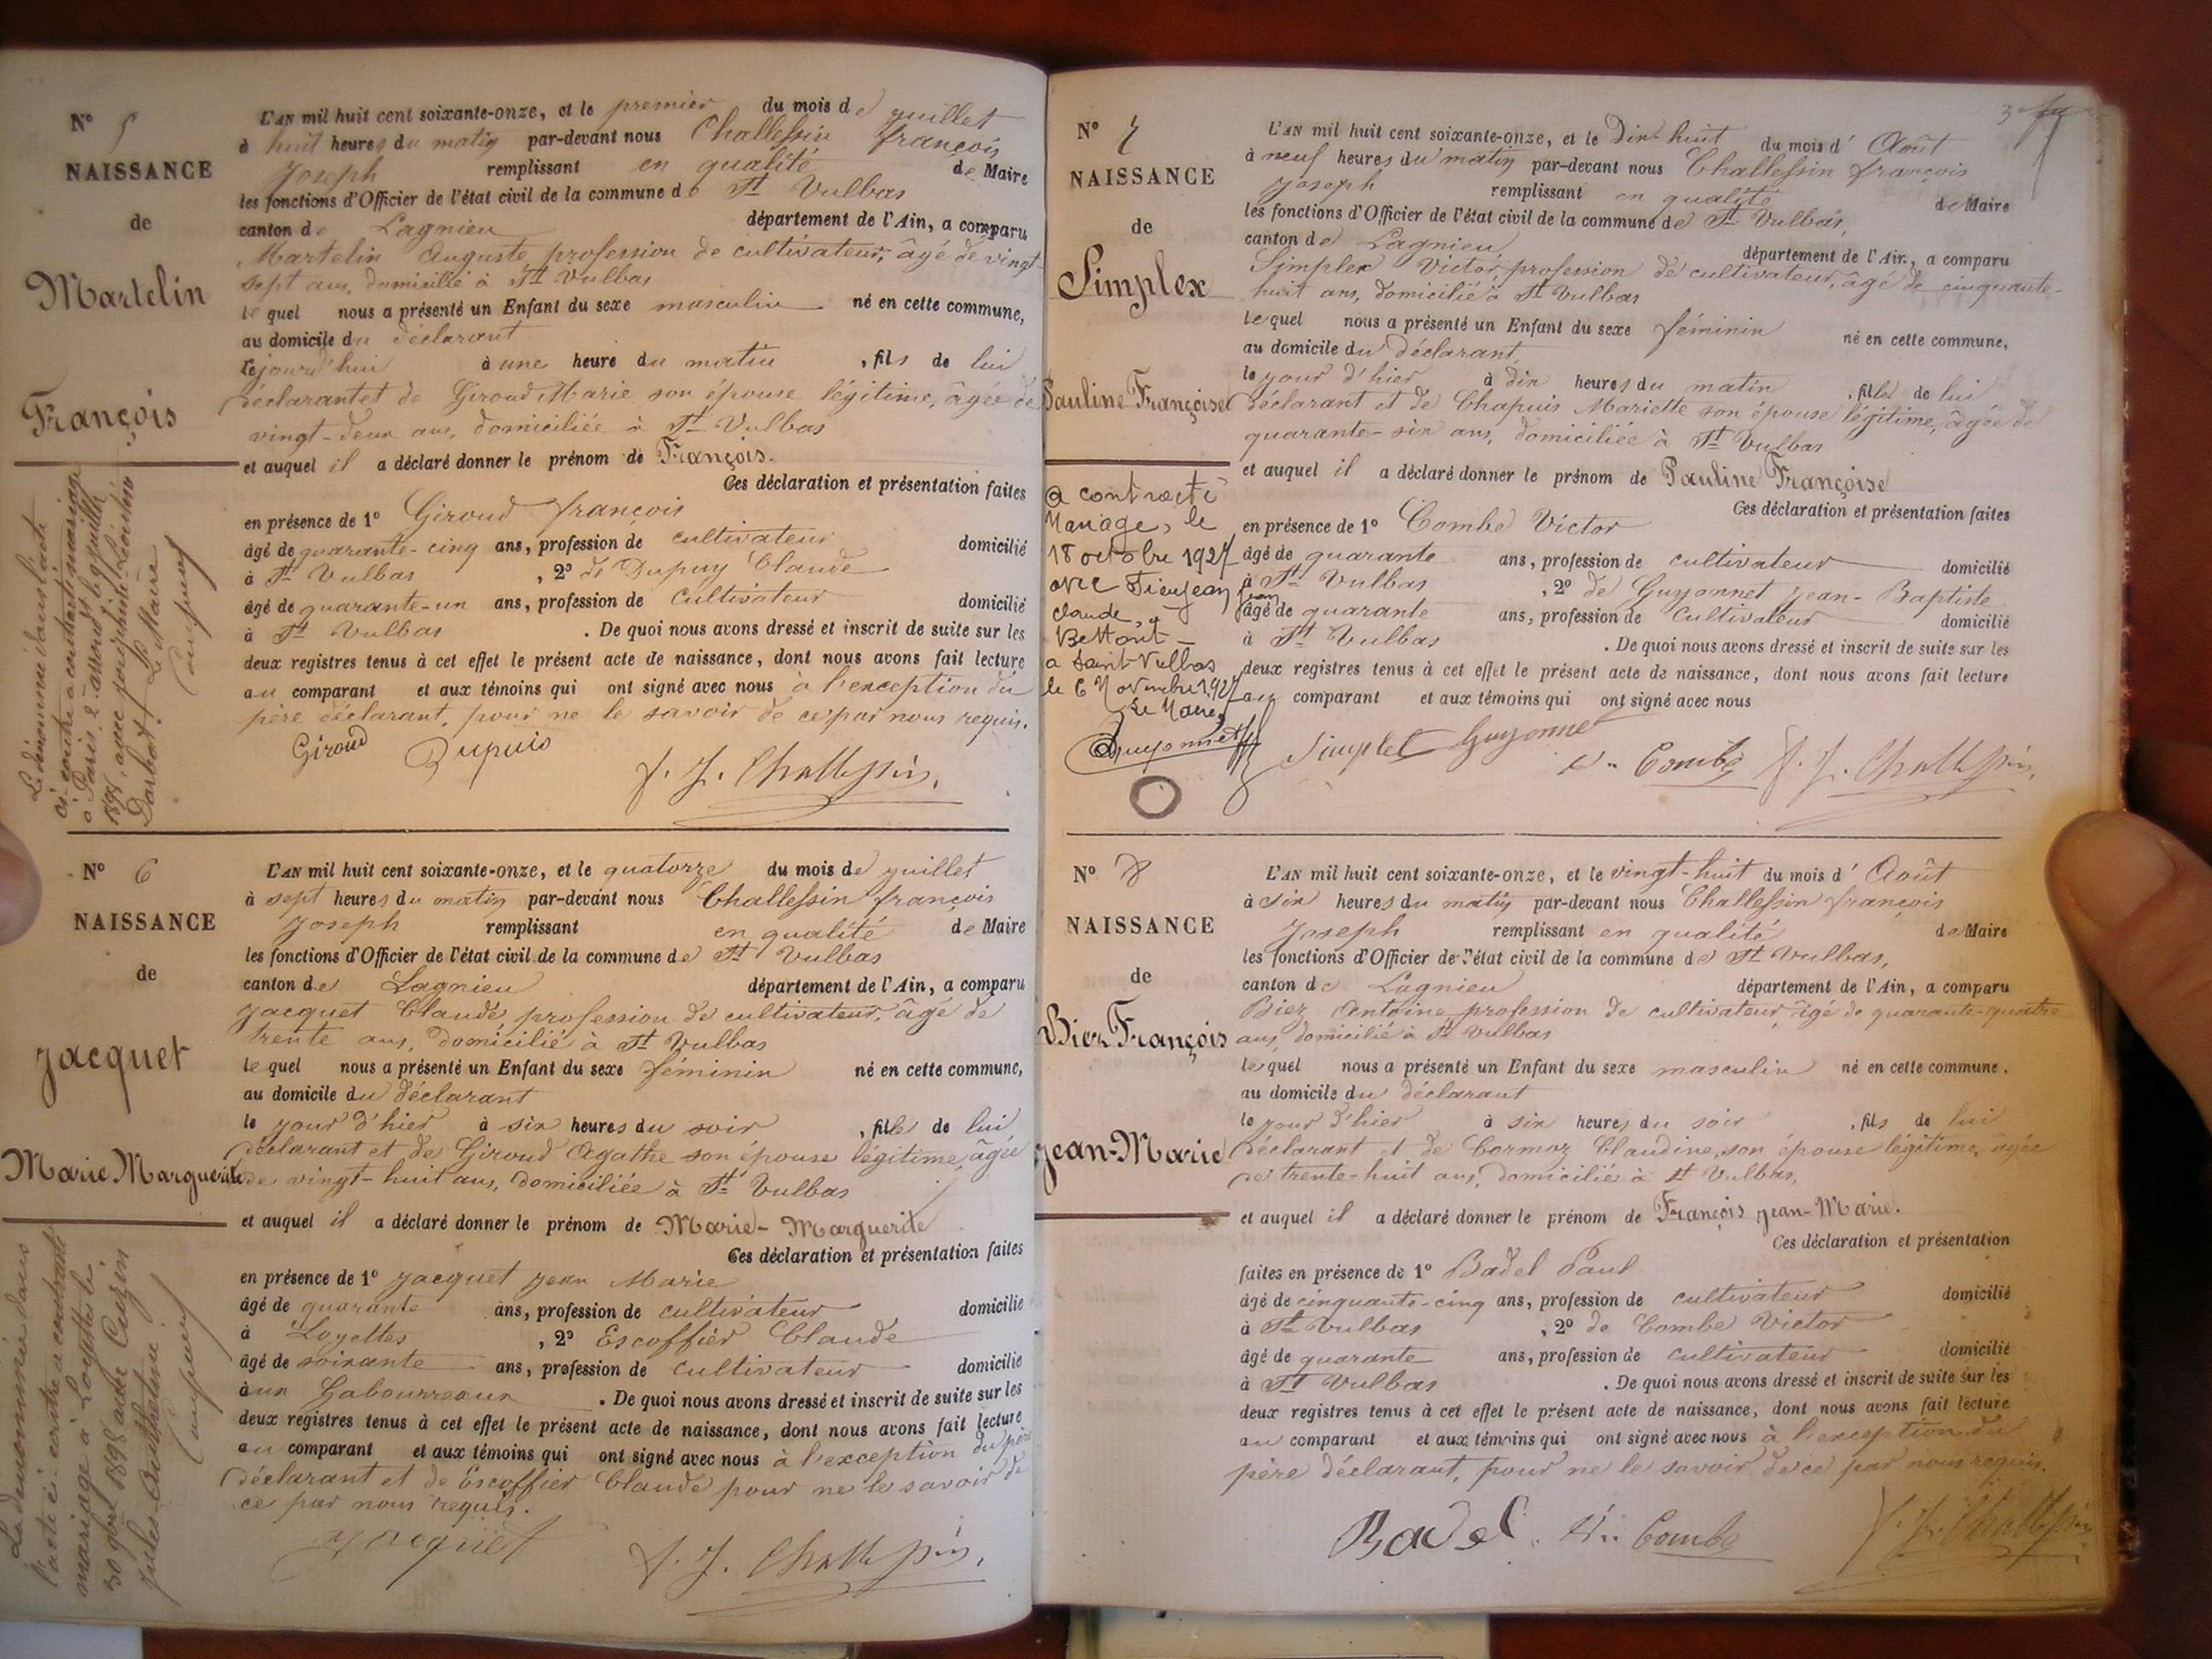 N° 5
NAISSANCE
de
Martelin
François
L'AN mil huit cent soixante-onze, et le premier du mois de juillet
à huit heures du matin par-devant nous Challessin françois
Joseph remplissant en qualité de Maire
les fonctions d'Officier de l'état civil de la commune de St Vulbas
canton de Lagnieu département de l'Ain, a comparu
Martelin Auguste profession de cultivateur, âgé de vingt-
sept ans, domicilié à St Vulbas
lequel nous a présenté un Enfant du sexe masculin né en cette commune,
au domicile du déclarant
cejourd'hui à une heure du matin, fils de lui
déclarant et de Giroud Marie son épouse légitime, âgée de
vingt-deux ans, domiciliée à St Vulbas
et auquel il a déclaré donner le prénom de François.
Ces déclaration et présentation faites
en présence de 1° Giroud françois
âgé de quarante-cinq ans, profession de cultivateur domicilié
à St Vulbas, 2° de Dupuy Claude
âgé de quarante-un ans, profession de cultivateur domicilié
à St Vulbas. De quoi nous avons dressé et inscrit de suite sur les
deux registres tenus à cet effet le présent acte de naissance, dont nous avons fait lecture
au comparant et aux témoins qui ont signé avec nous à l'exception du
père déclarant, pour ne le savoir de ce par nous requis.
Giroud Dupuis
f. J. Challessin.
Le dénommé dans l'acte
ci-contre a contracté mariage
à Paris, 2e arrond. le juillet
1898, avec
Darbot. Le Maire
N° 6
NAISSANCE
de
Jacquet
Marie Marguerite
L'AN mil huit cent soixante-onze, et le quatorze du mois de juillet
à sept heures du matin par-devant nous Challessin françois
Joseph remplissant en qualité de Maire
les fonctions d'Officier de l'état civil de la commune de St Vulbas
canton de Lagnieu département de l'Ain, a comparu
Jacquet Claude profession de cultivateur, âgé de
trente ans, domicilié à St Vulbas
lequel nous a présenté un Enfant du sexe féminin né en cette commune,
au domicile du déclarant
le jour d'hier à six heures du soir, fille de lui
déclarant et de Giroud Agathe son épouse légitime, âgée
de vingt-huit ans, domiciliée à St Vulbas
et auquel il a déclaré donner le prénom de Marie-Marguerite
Ces déclaration et présentation faites
en présence de 1° Jacquet Jean Marie
âgé de quarante ans, profession de cultivateur domicilié
à Loyettes, 2° Escoffier Claude
âgé de soixante ans, profession de cultivateur domicilié
aux Gaboureaux. De quoi nous avons dressé et inscrit de suite sur les
deux registres tenus à cet effet le présent acte de naissance, dont nous avons fait lecture
au comparant et aux témoins qui ont signé avec nous à l'exception du père
déclarant et de Escoffier Claude pour ne le savoir de
ce par nous requis.
Jacquet f. J. Challessin.
La dénommée dans
l'acte ci-contre a contracté
mariage à Loyettes le
30 avril 1898 avec Cuzin
Jules-Anthelme
N° 7
NAISSANCE
de
Simplex
Pauline Françoise
L'AN mil huit cent soixante-onze, et le Dix-huit du mois d'Août
à neuf heures du matin par-devant nous Challessin françois
Joseph remplissant en qualité de Maire
les fonctions d'Officier de l'état civil de la commune de St Vulbas,
canton de Lagnieu département de l'Ain, a comparu
Simplex Victor, profession de cultivateur, âgé de cinquante-
huit ans, domicilié à St Vulbas
lequel nous a présenté un Enfant du sexe féminin né en cette commune,
au domicile du déclarant
le jour d'hier à dix heures du matin, fille de lui
déclarant et de Chapuis Mariette son épouse légitime, âgée de
quarante-six ans, domiciliée à St Vulbas
et auquel il a déclaré donner le prénom de Pauline Françoise
Ces déclaration et présentation faites
en présence de 1° Combe Victor
âgé de quarante ans, profession de cultivateur domicilié
à St Vulbas, 2° de Guyonnet Jean-Baptiste
âgé de quarante ans, profession de cultivateur domicilié
à St Vulbas. De quoi nous avons dressé et inscrit de suite sur les
deux registres tenus à cet effet le présent acte de naissance, dont nous avons fait lecture
au comparant et aux témoins qui ont signé avec nous
Simplex Guyonnet
Vr Combe f. J. Challessin.
a contracté
Mariage, le
18 octobre 1927
avec Tieujean Jean
Claude, à
Bettant
a Saint-Vulbas
le 6 Novembre 1927
Le Maire,
Guyonnet
N° 8
NAISSANCE
de
Biez François
Jean-Marie
L'AN mil huit cent soixante-onze, et le vingt-huit du mois d'Août
à six heures du matin par-devant nous Challessin françois
Joseph remplissant en qualité de Maire
les fonctions d'Officier de l'état civil de la commune de St Vulbas,
canton de Lagnieu département de l'Ain, a comparu
Biez Antoine, profession de cultivateur, âgé de quarante-quatre
ans, domicilié à St Vulbas
lequel nous a présenté un Enfant du sexe masculin né en cette commune.
au domicile du déclarant
le jour d'hier à six heures du soir, fils de lui
déclarant et de Cormoz Claudine, son épouse légitime, âgée
de trente-huit ans, domiciliée à St Vulbas,
et auquel il a déclaré donner le prénom de François Jean-Marie.
Ces déclaration et présentation
faites en présence de 1° Badel Paul
âgé de cinquante-cinq ans, profession de cultivateur domicilié
à St Vulbas, 2° de Combe Victor
âgé de quarante ans, profession de cultivateur domicilié
à St Vulbas. De quoi nous avons dressé et inscrit de suite sur les
deux registres tenus à cet effet le présent acte de naissance, dont nous avons fait lecture
au comparant et aux témoins qui ont signé avec nous à l'exception du
père déclarant, pour ne le savoir de ce par nous requis.
Badel. Vr Combe f. J. Challessin